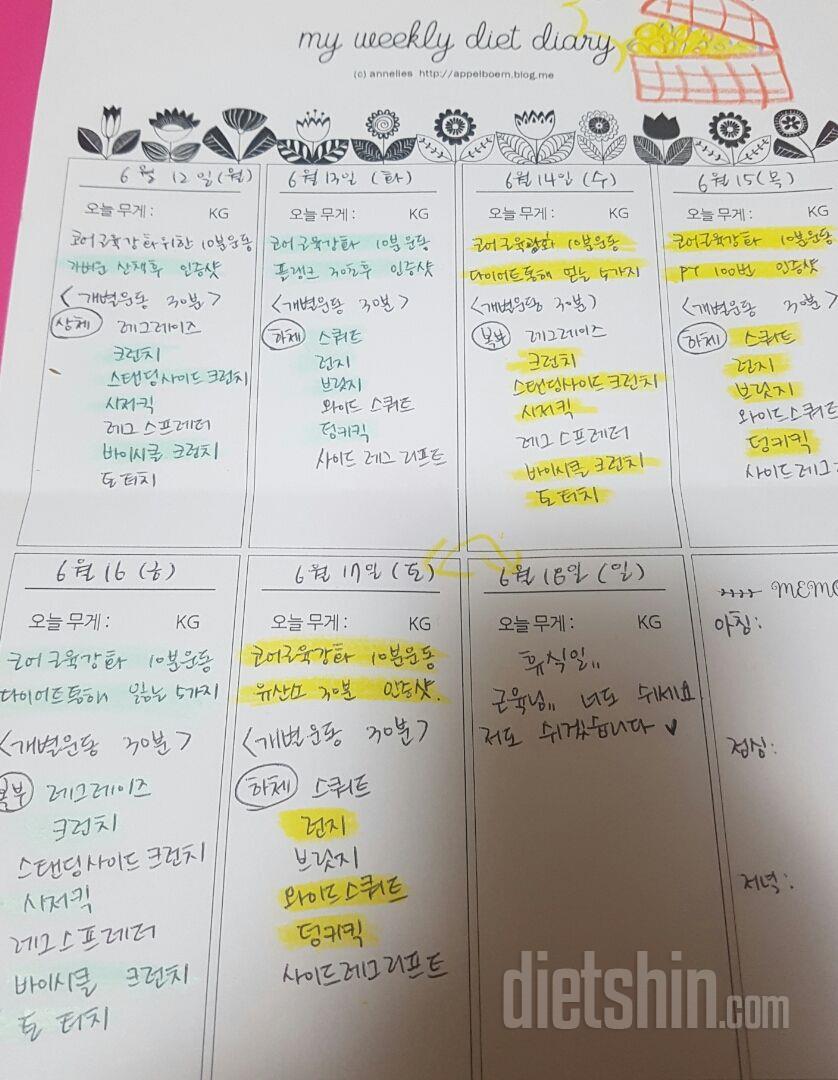 my weekly diet diary
(c) annelies http://appelboem.blog.me
6월 12일(월)
오늘 무게: KG
코어근육강화위한 10분운동
가벼운 산책후 인증샷
<개별운동 30분>
상체 레그레이즈
크런치
스탠딩사이드크런치
시저킥
레그스프레더
바이시클 크런치
토터치
6월13일 (화)
오늘 무게: KG
코어근육강화 10분운동
플랭크 30초후 인증샷
<개별운동 30분>
하체 스쿼트
런지
브릿지
와이드 스쿼트
덩키킥
사이드 레그 리프트
6월14일 (수)
오늘 무게: KG
코어근육강화 10분운동
다이어트통해 얻는 5가지
<개별운동 30분>
복부 레그레이즈
크런치
스탠딩사이드크런치
시저킥
레그스프레더
바이시클 크런치
토터치
6월 15(목)
오늘 무게: KG
코어근육강화 10분운동
PT 100번 인증샷
<개별운동 30분>
하체 스쿼트
런지
브릿지
와이드스쿼트
덩키킥
사이드레그
6월 16 (금)
오늘 무게: KG
코어근육강화 10분운동
다이어트통해 잃는 5가지
<개별운동 30분>
복부 레그레이즈
크런치
스탠딩사이드크런치
시저킥
레그스프레더
바이시클 크런치
토 터치
6월 17일(토)
오늘 무게: KG
코어근육강화 10분운동
유산소 30분 인증샷.
<개별운동 30분>
하체 스쿼트
런지
브릿지
와이드스쿼트
덩키킥
사이드레그리프트
6월 18일(일)
오늘 무게: KG
휴식일,,
근육님,, 너도 쉬세요
저도 쉬겠습니다 ♥
MEMO
아침:
점심:
저녁:
dietshin.com